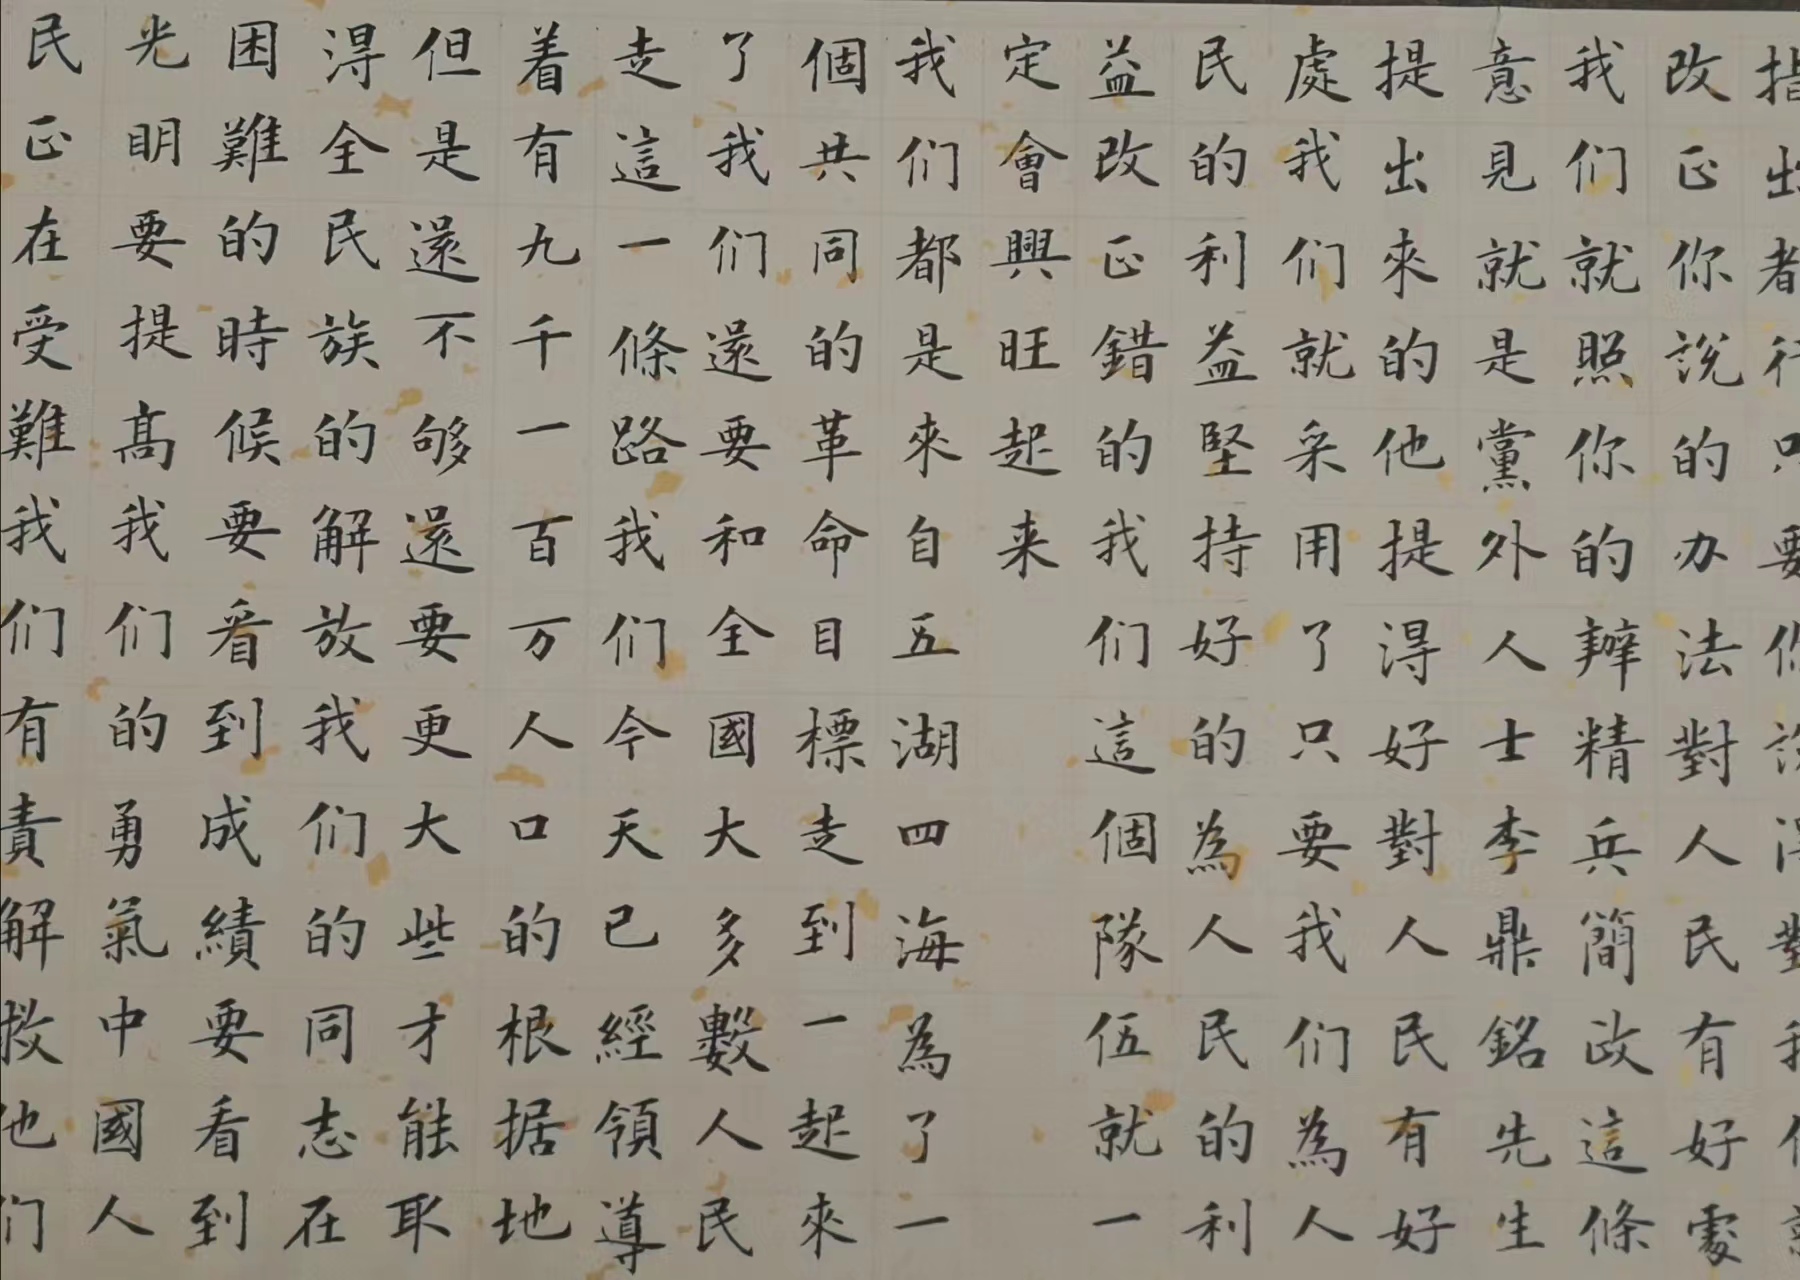 指出都行只要你說得對我们就
改正你說的办法對人民有好處
我们就照你的辦精兵簡政這條
意見就是黨外人士李鼎銘先生
提出來的他提得好對人民有好
處我们就采用了只要我们為人
民的利益堅持好的為人民的利
益改正錯的我们這個隊伍就一
定會興旺起来
我们都是來自五湖四海為了一
個共同的革命目標走到一起來
了我们還要和全國大多數人民
走這一條路我们今天已經領導
着有九千一百万人口的根据地
但是還不够還要更大些才能取
得全民族的解放我们的同志在
困難的時候要看到成績要看到
光明要提高我们的勇氣中國人
民正在受難我们有責解救他们